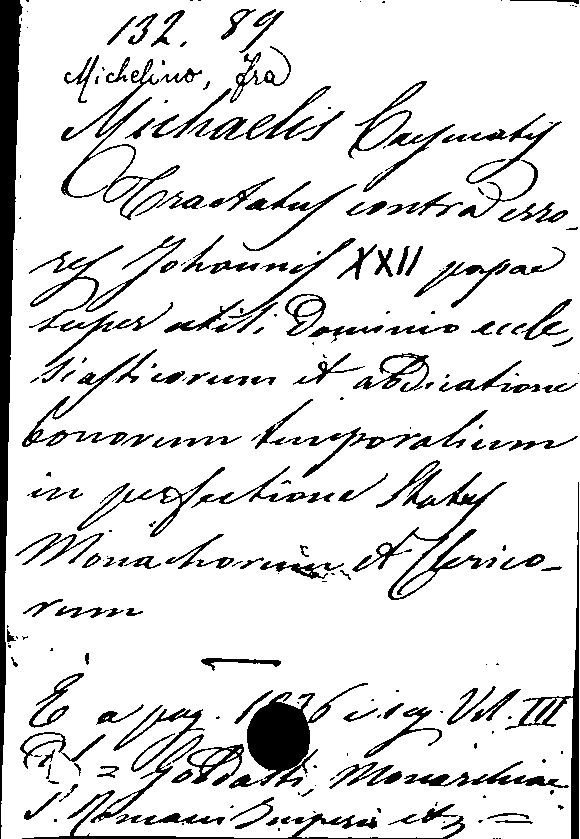 132. 89
Michelino, fra
Michaelis Caesenatis
Tractatus contra erro-
res Johannis XXII papae
super utili Dominio eccle,
siasticorum et abdicatione
bonorum temporalium
in perfectione Status
Monachorum et Clerico-
rum
E a pag. 1236 i seg. Vol. III
= Goldasti, Monarchiae
S. Romani Imperii etc =